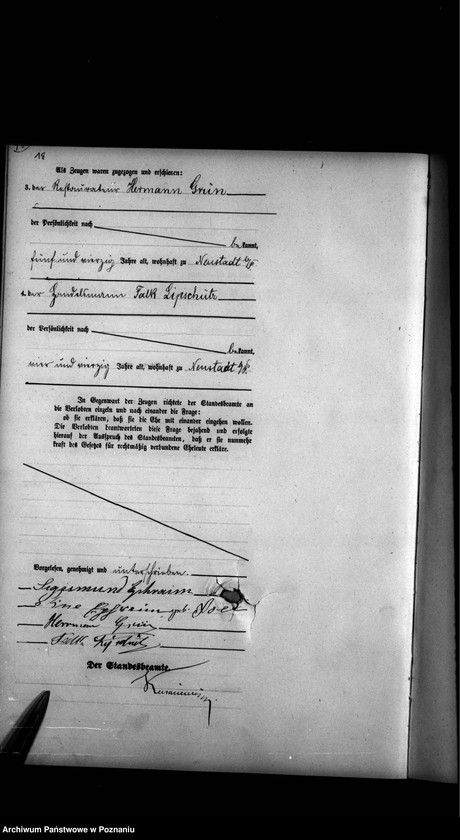 18
Als Zeugen waren zugezogen und erschienen:
3. der Restaurateur Hermann Grün
der Persönlichkeit nach
bekannt,
fünf und vierzig Jahre alt, wohnhaft zu Neustadt b/P
4. der Handelsmann Falk Lipschütz
der Persönlichkeit nach
bekannt,
vier und vierzig Jahre alt, wohnhaft zu Neustadt b/P.
In Gegenwart der Zeugen richtete der Standesbeamte an
die Verlobten einzeln und nach einander die Frage:
ob sie erklären, daß sie die Ehe mit einander eingehen wollen.
Die Verlobten beantworteten diese Frage bejahend und erfolgte
hierauf der Ausspruch des Standesbeamten, daß er sie nunmehr
kraft des Gesetzes für rechtmäßig verbundene Eheleute erkläre.
Vorgelesen, genehmigt und unterschrieben.
Siegismund Ephraim
Ephraim geb.
Hermann Grün
Falk Lipschütz
Der Standesbeamte.
Archiwum Państwowe w Poznaniu